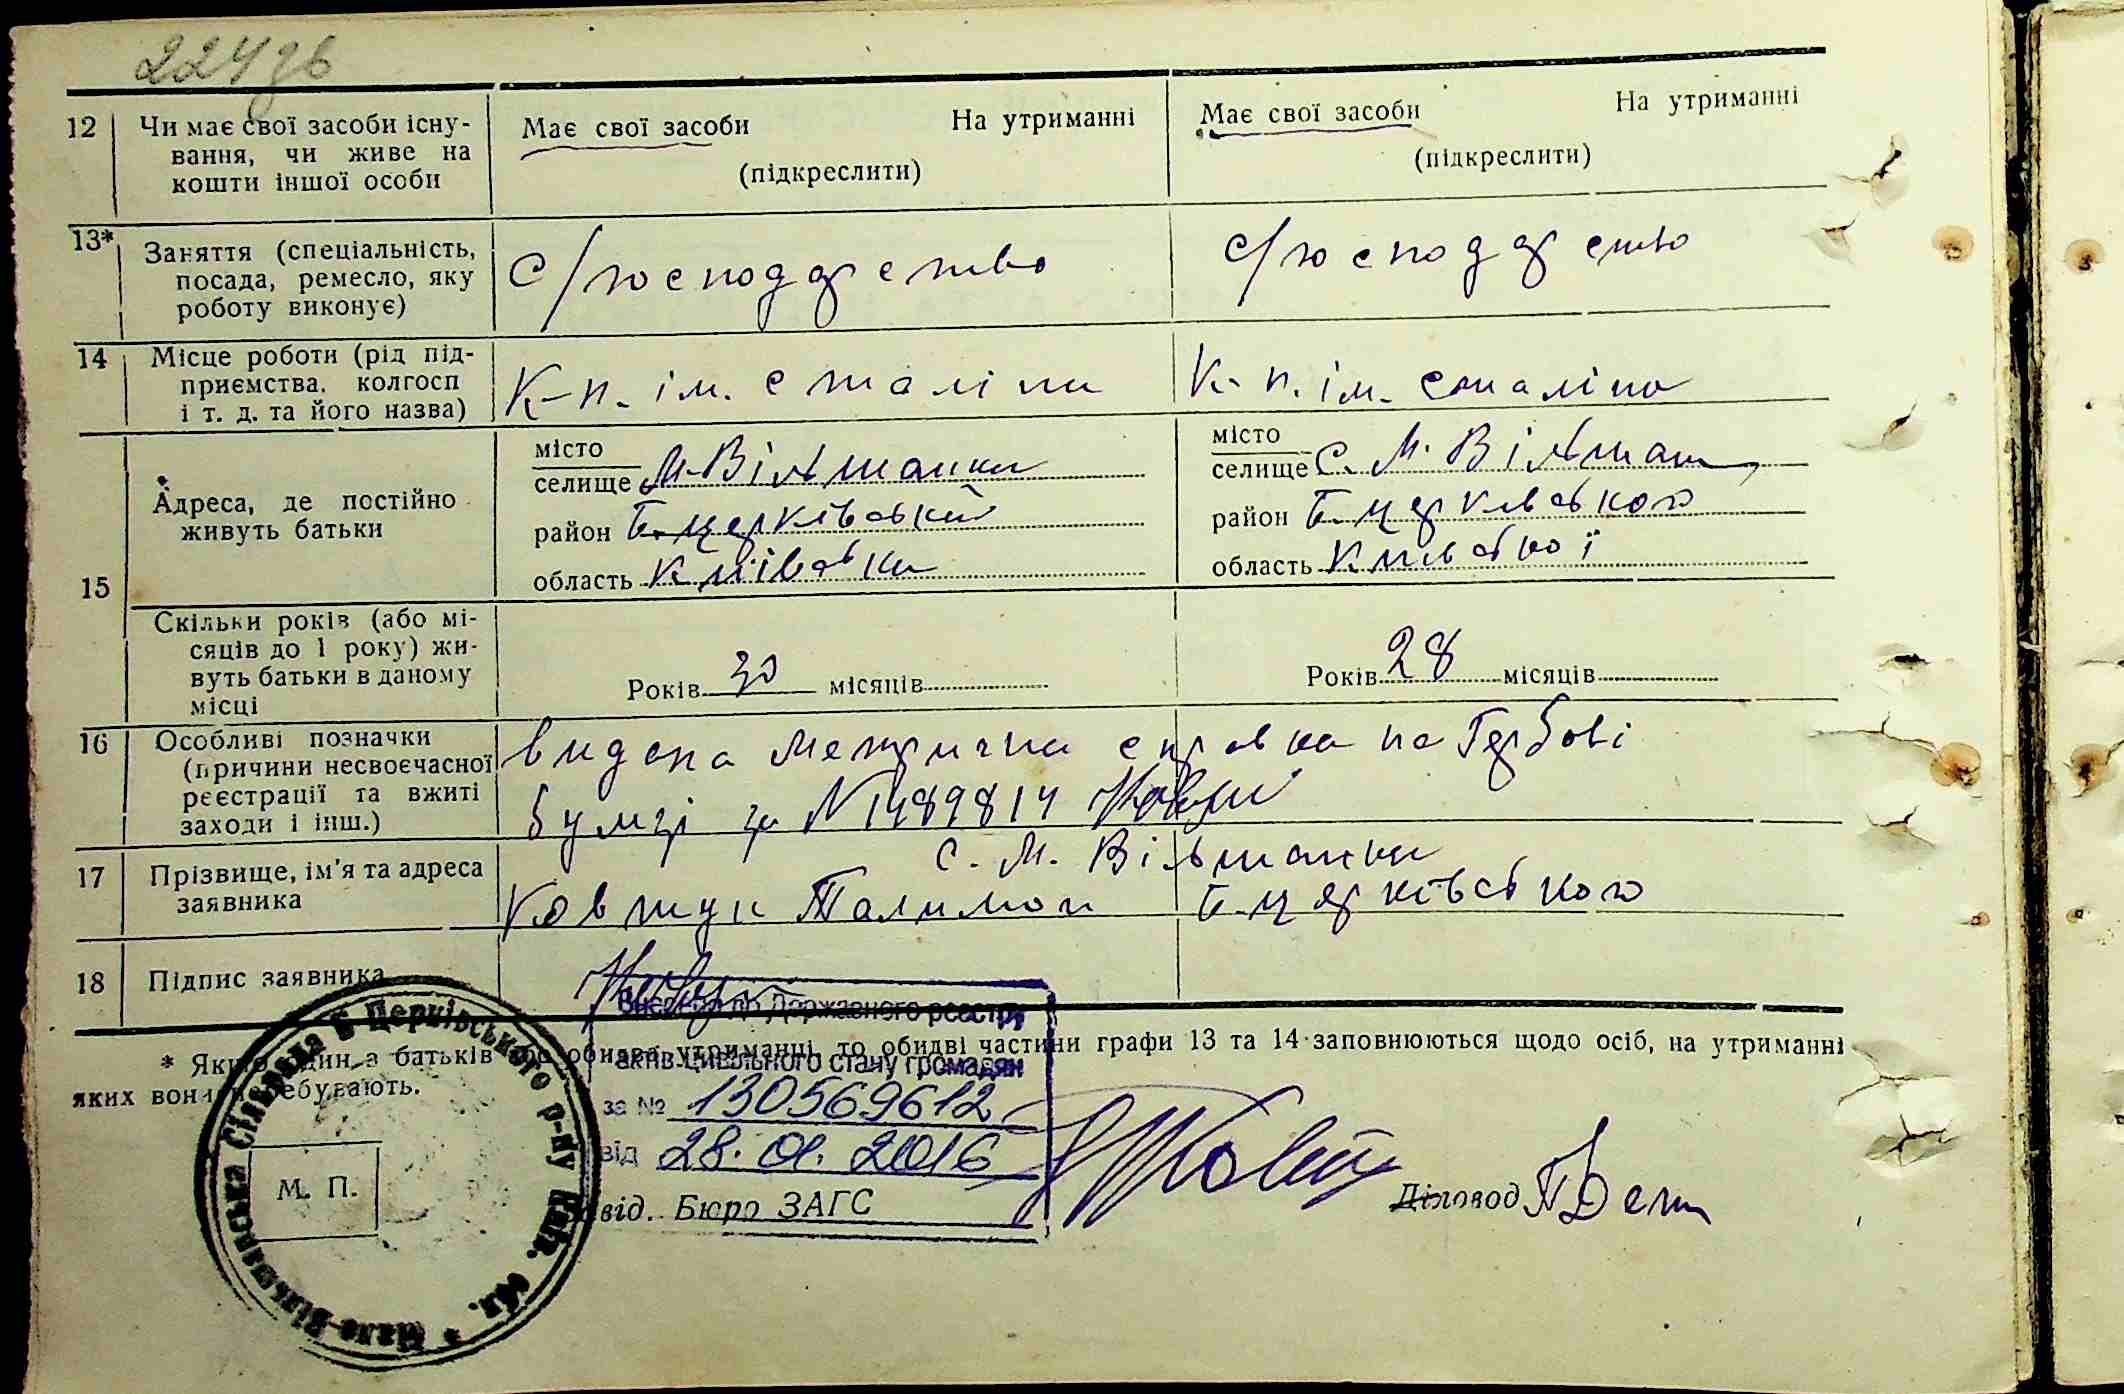 224зв
12 Чи має свої засоби існу-
вання, чи живе на
кошти іншої особи
Має свої засоби На утриманні
(підкреслити)
Має свої засоби На утриманні
(підкреслити)
13* Заняття (спеціальність,
посада, ремесло, яку
роботу виконує)
с/господарство
с/господарство
14 Місце роботи (рід під-
приємства, колгосп
і т. д. та його назва)
К-п. ім. Сталіна
К-п. ім. Сталіна
15 Адреса, де постійно
живуть батьки
місто
селище М-Вільшанка
район Б-церківський
область Київська
місто
селище С. М. Вільшан
район Б-церківського
область Київської
Скільки років (або мі-
сяців до 1 року) жи-
вуть батьки в даному
місці
Років 30 місяців
Років 28 місяців
16 Особливі позначки
(причини несвоєчасної
реєстрації та вжиті
заходи і інш.)
видана метрична справка на Гербові
бумзі за N 1489814
17 Прізвище, ім'я та адреса
заявника
с. М. Вільшанки
Ковтун Талимон Б-церківського
18 Підпис заявника
* Якщо один з батьків або обидва утриманці, то обидві частини графи 13 та 14 заповнюються щодо осіб, на утриманні
яких вони перебувають.
Внесено до Державного реєстру
актів цивільного стану громадян
за № 130569612
від 28.01.2016
М. П.
Зав. від. Бюро ЗАГС
Діловод
Мало-Вільшанська Сільрада Б Церківського р-ну Київ. обл. *